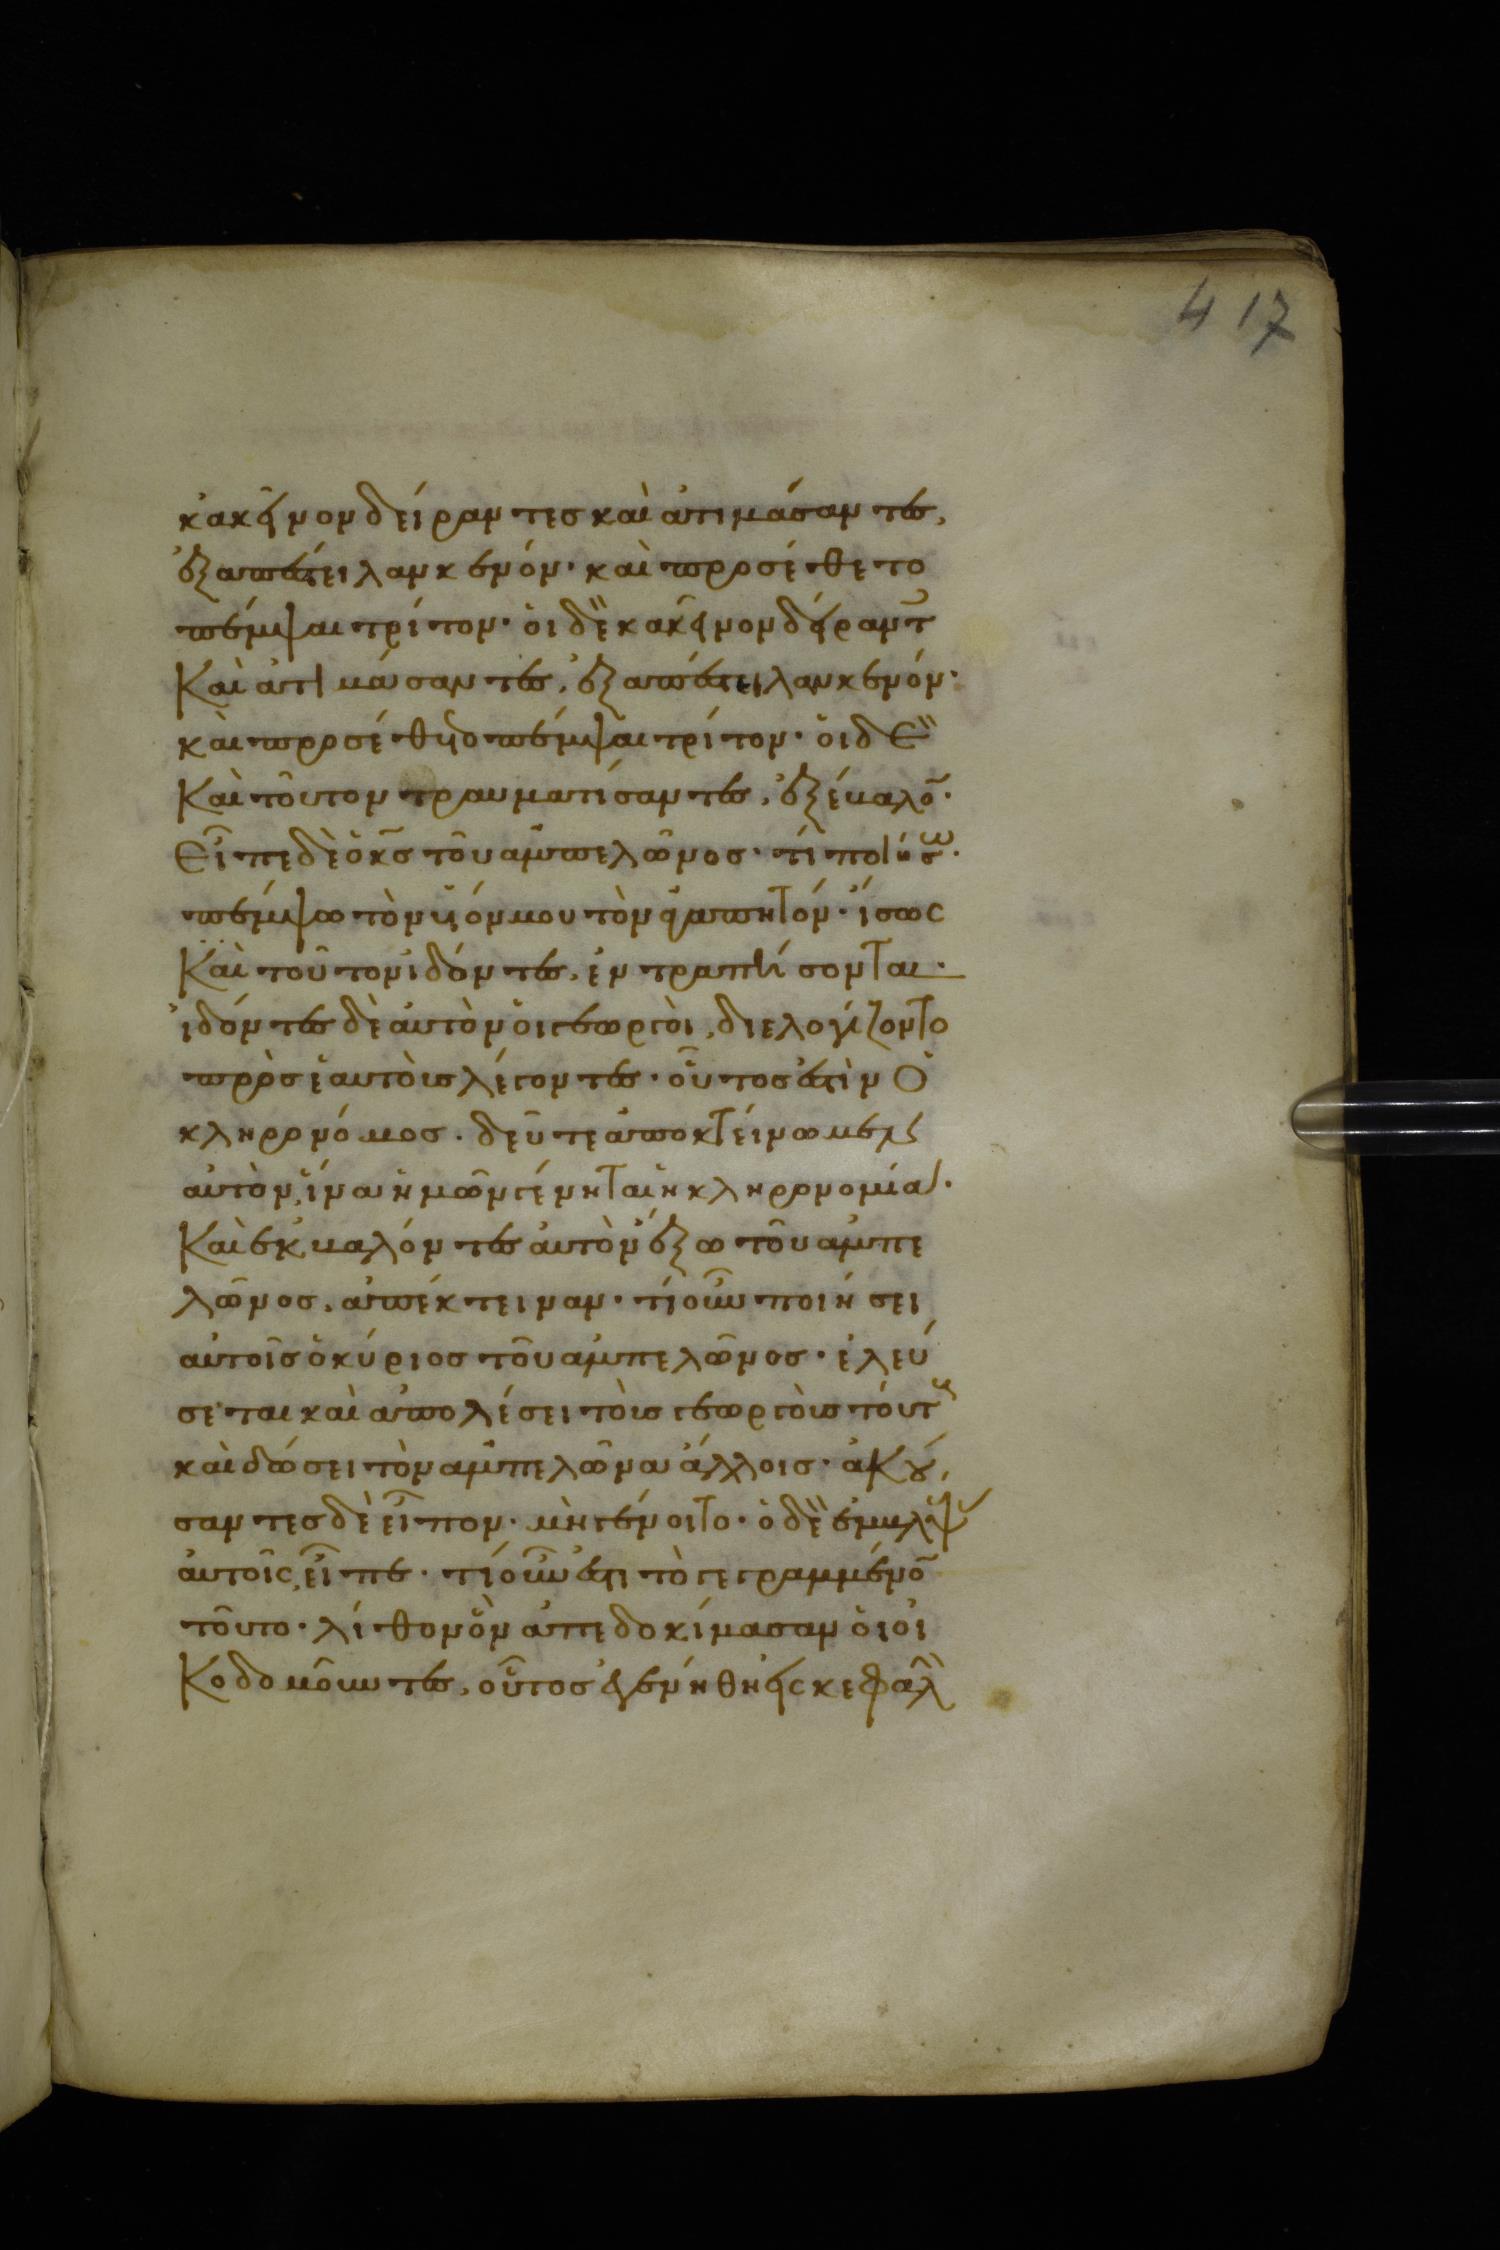 417
κἀκεῖνον δείραντες καὶ ἀτιμάσαντες,
ἐξαπέστειλαν κενόν· καὶ προσέθετο
πέμψαι τρίτον· οἱ δὲ κἀκεῖνον δείραντ
Καὶ ἀτιμάσαντες, ἐξαπέστειλαν κενόν·
καὶ προσέθετο πέμψαι τρίτον· οἱ δὲ
Καὶ τοῦτον τραυματίσαντες, ἐξέβαλο̅·
Εἶπε δὲ ὁ κ̅ς τοῦ ἀμπελῶνος· τί ποιήσω·
πέμψω τὸν υἱόν μου τὸν ἀγαπητόν· ἴσως
Καὶ τοῦτον ἰδόντες, ἐντραπήσονται·
ἰδόντες δὲ αὐτὸν οἱ γεωργοὶ, διελογίζοντο
πρὸς ἑαυτοὺς λέγοντες· οὗτος ἐστὶν ὁ
κληρονόμος· δεῦτε ἀποκτείνωμεν
αὐτὸν, ἵνα ἡμῶν γένηται ἡ κληρονομία·
Καὶ ἐκβαλόντες αὐτὸν ἔξω τοῦ ἀμπε
λῶνος, ἀπέκτειναν· τί οὖν ποιήσει
αὐτοῖς ὁ κύριος τοῦ ἀμπελῶνος· ἐλεύ
σεται καὶ ἀπολέσει τοὺς γεωργοὺς τούτους
καὶ δώσει τὸν ἀμπελῶνα ἄλλοις· ἀκού
σαντες δὲ εἶπον· μὴ γένοιτο· ὁ δὲ ἐμβλέψας
αὐτοῖς, εἶπε· τί οὖν ἐστι τὸ γεγραμμένο̅
τοῦτο· λίθον ὃν ἀπεδοκίμασαν οἱ οἰ
Κοδομοῦντες, οὗτος ἐγενήθη εἰς κεφαλὴ